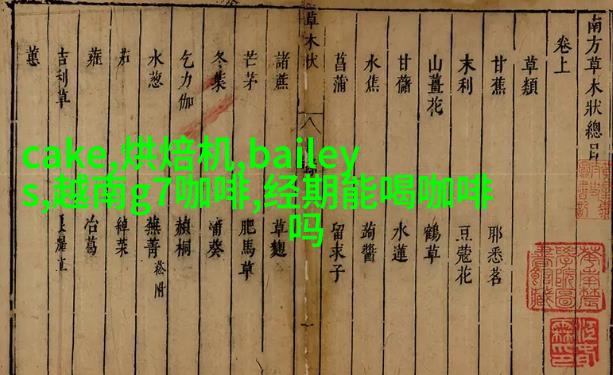 cake,烘焙机,bailey
s,越南g7咖啡,经期能喝咖啡
吗
南方草木狀總目
卷上
草類
甘蕉 耶悉茗
末利 豆蔻花
山薑花 鶴草
甘藷 水蓮
水蕉 蒟醬
菖蒲 留求子
草木狀
諸蔗 草麴
芒茅 肥馬草
冬葉 蒲葵
乞力伽 赬桐
水葱 蕪菁 菘附
茄 綽菜
蕹 冶葛
吉利草
蕙